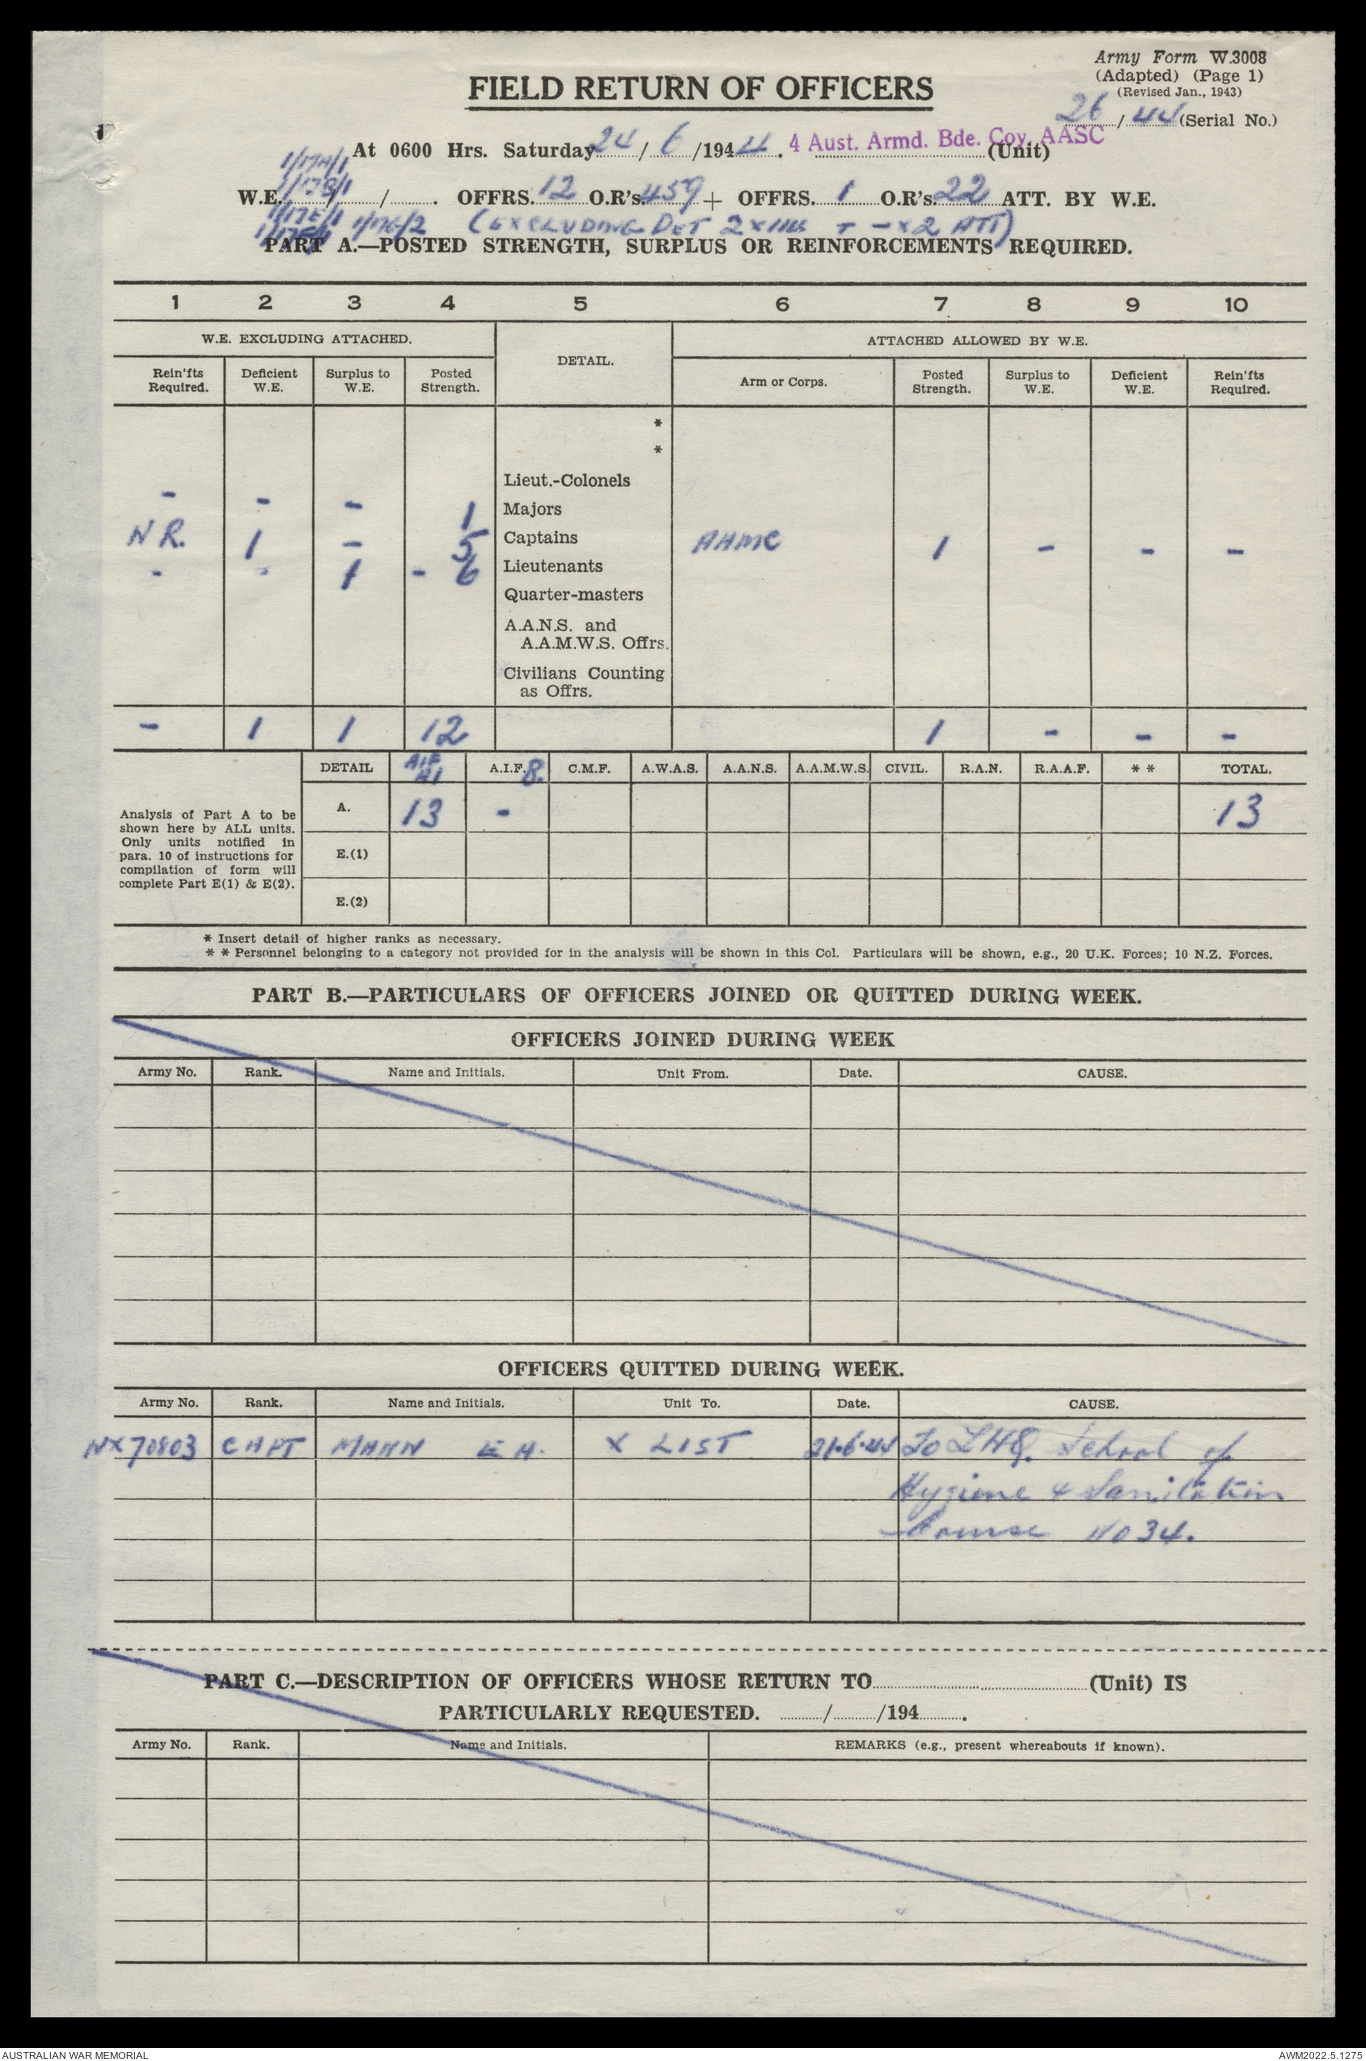 Army Form W.3008
(Adapted) (Page 1)
(Revised Jan., 1943)
FIELD RETURN OF OFFICERS
26/44 (Serial No.)
At 0600 Hrs. Saturday 24/6/1944. 4 Aust. Armd. Bde. Coy. AASC (Unit)
1/17A/1
1/17B/1
W.E. / / . OFFRS. 12 O.R's. 459 + OFFRS. 1 O.R's. 22 ATT. BY W.E.
1/17E/1 1/17G/2 (EXCLUDING DET 2 x 114 + - x 2 ATT)
PART A.—POSTED STRENGTH, SURPLUS OR REINFORCEMENTS REQUIRED.
1 2 3 4 5 6 7 8 9 10
W.E. EXCLUDING ATTACHED. DETAIL. ATTACHED ALLOWED BY W.E.
Rein'fts Required. Deficient W.E. Surplus to W.E. Posted Strength. Arm or Corps. Posted Strength. Surplus to W.E. Deficient W.E. Rein'fts Required.
*
*
Lieut.-Colonels
- - - 1 Majors
NR. 1 - 5 Captains AAMC 1 - - -
- - 1 - 6 Lieutenants
Quarter-masters
A.A.N.S. and
A.A.M.W.S. Offrs.
Civilians Counting
as Offrs.
- 1 1 12 1 - - -
DETAIL AIF A1 A.I.F. B. C.M.F. A.W.A.S. A.A.N.S. A.A.M.W.S. CIVIL. R.A.N. R.A.A.F. * * TOTAL.
A. 13 - 13
Analysis of Part A to be
shown here by ALL units.
Only units notified in
para. 10 of instructions for
compilation of form will
complete Part E(1) & E(2).
E.(1)
E.(2)
* Insert detail of higher ranks as necessary.
* * Personnel belonging to a category not provided for in the analysis will be shown in this Col. Particulars will be shown, e.g., 20 U.K. Forces; 10 N.Z. Forces.
PART B.—PARTICULARS OF OFFICERS JOINED OR QUITTED DURING WEEK.
OFFICERS JOINED DURING WEEK
Army No. Rank. Name and Initials. Unit From. Date. CAUSE.
OFFICERS QUITTED DURING WEEK.
Army No. Rank. Name and Initials. Unit To. Date. CAUSE.
NX70803 CAPT MANN E H. X LIST 21.6.44 To LHQ. School of
Hygiene & Sanitation
Course No 34.
PART C.—DESCRIPTION OF OFFICERS WHOSE RETURN TO (Unit) IS
PARTICULARLY REQUESTED. / /194 .
Army No. Rank. Name and Initials. REMARKS (e.g., present whereabouts if known).
AUSTRALIAN WAR MEMORIAL AWM2022.5.1275